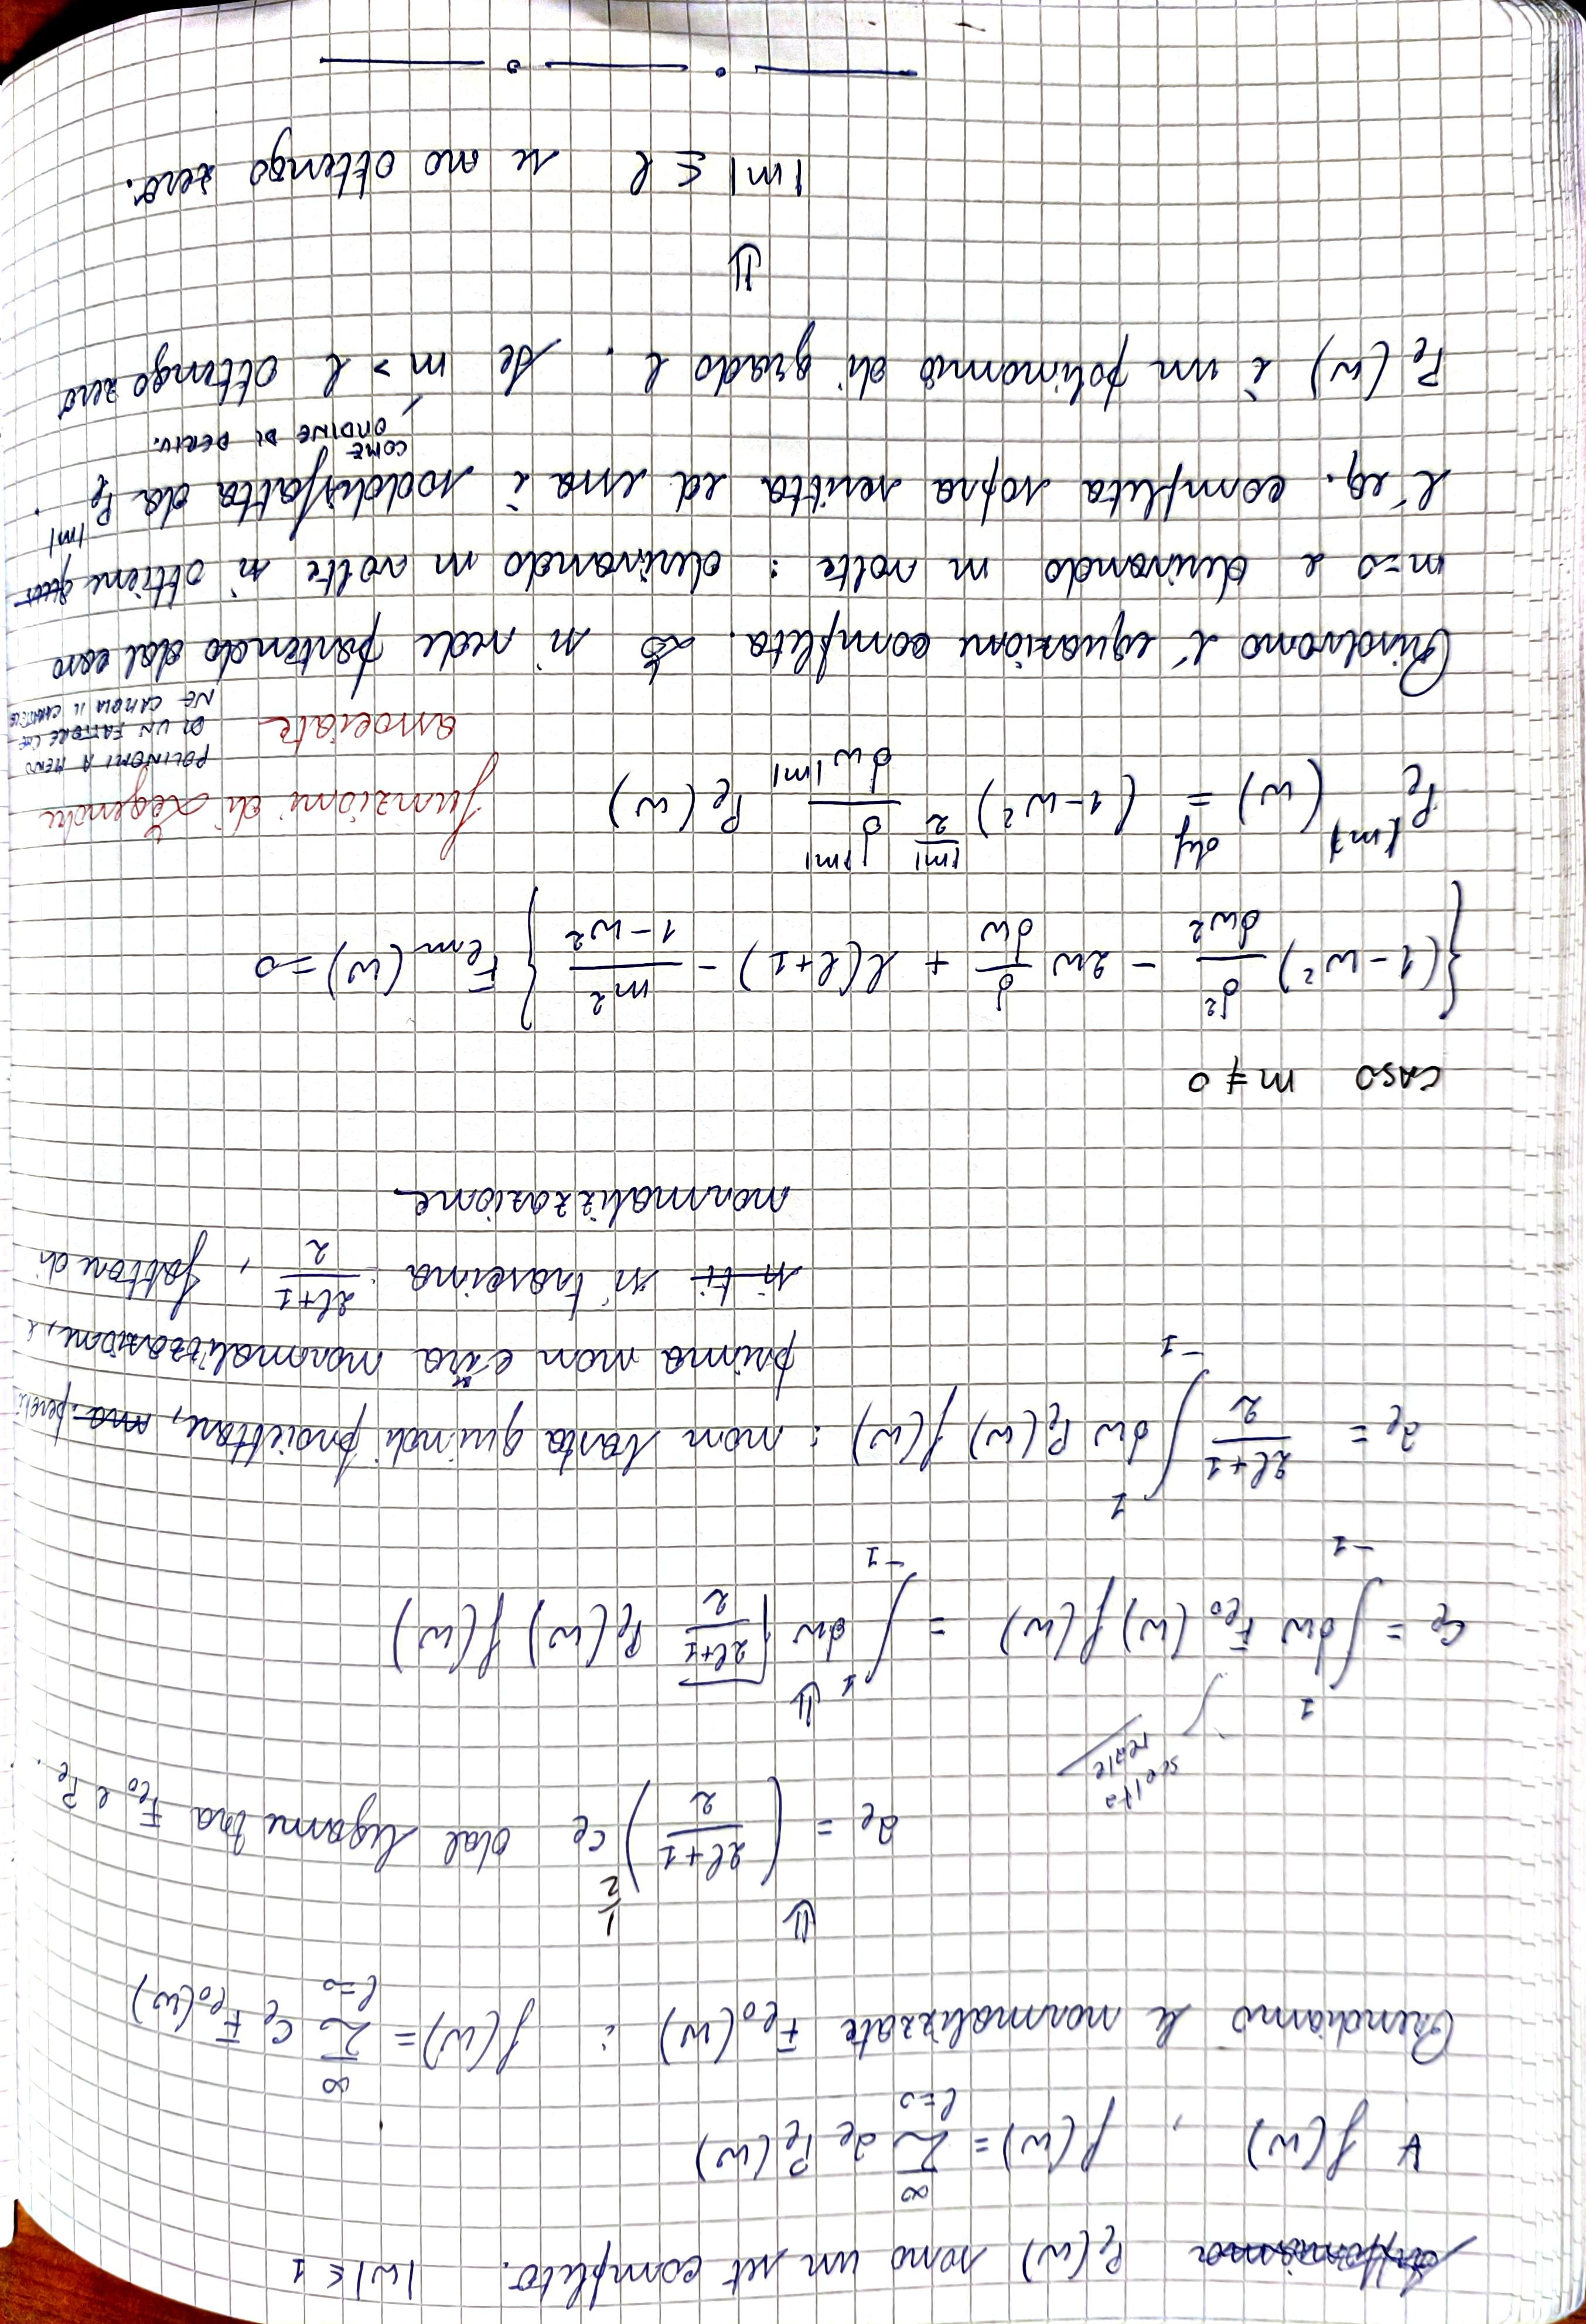 P_l(w) sono un set completo. |w| ≤ 1
∀ f(w) , f(w) = ∑_{l=0}^{∞} a_l P_l(w)
Prendiamo le normalizzate F_{l0}(w) : f(w) = ∑_{l=0}^{∞} c_l F_{l0}(w)
⇓
a_l = (\frac{2l+1}{2})^{\frac{1}{2}} c_l dal legame tra F_{l0} e P_l.
scelta
reale
c_l = ∫_{-1}^{1} dw F_{l0}(w) f(w) = ∫_{-1}^{1} dw \sqrt{\frac{2l+1}{2}} P_l(w) f(w)
⇓
a_l = \frac{2l+1}{2} ∫_{-1}^{1} dw P_l(w) f(w) : non basta quindi proiettare, perché
prima non c'era normalizzazione, e
si trascina \frac{2l+1}{2}, fattore di
normalizzazione
CASO m ≠ 0
{(1-w²) \frac{d²}{dw²} - 2w \frac{d}{dw} + l(l+1) - \frac{m²}{1-w²}} F_{lm}(w) = 0
P_l^{|m|}(w) =_{def} (1-w²)^{\frac{|m|}{2}} \frac{d^{|m|}}{dw^{|m|}} P_l(w) funzioni di Legendre
associate
POLINOMI A MENO
DI UN FATTORE CHE
NE CAMBIA IL CARATTERE
Risolvono l'equazione completa. Lo si vede partendo dal caso
m=0 e derivando m volte : derivando m volte si ottiene
l'eq. completa sopra scritta ed essa è soddisfatta da P_l^{|m|}.
COME
ORDINE DI DERIV.
P_l(w) è un polinomio di grado l. Se m > l ottengo zero
⇓
|m| ≤ l se no ottengo zero.